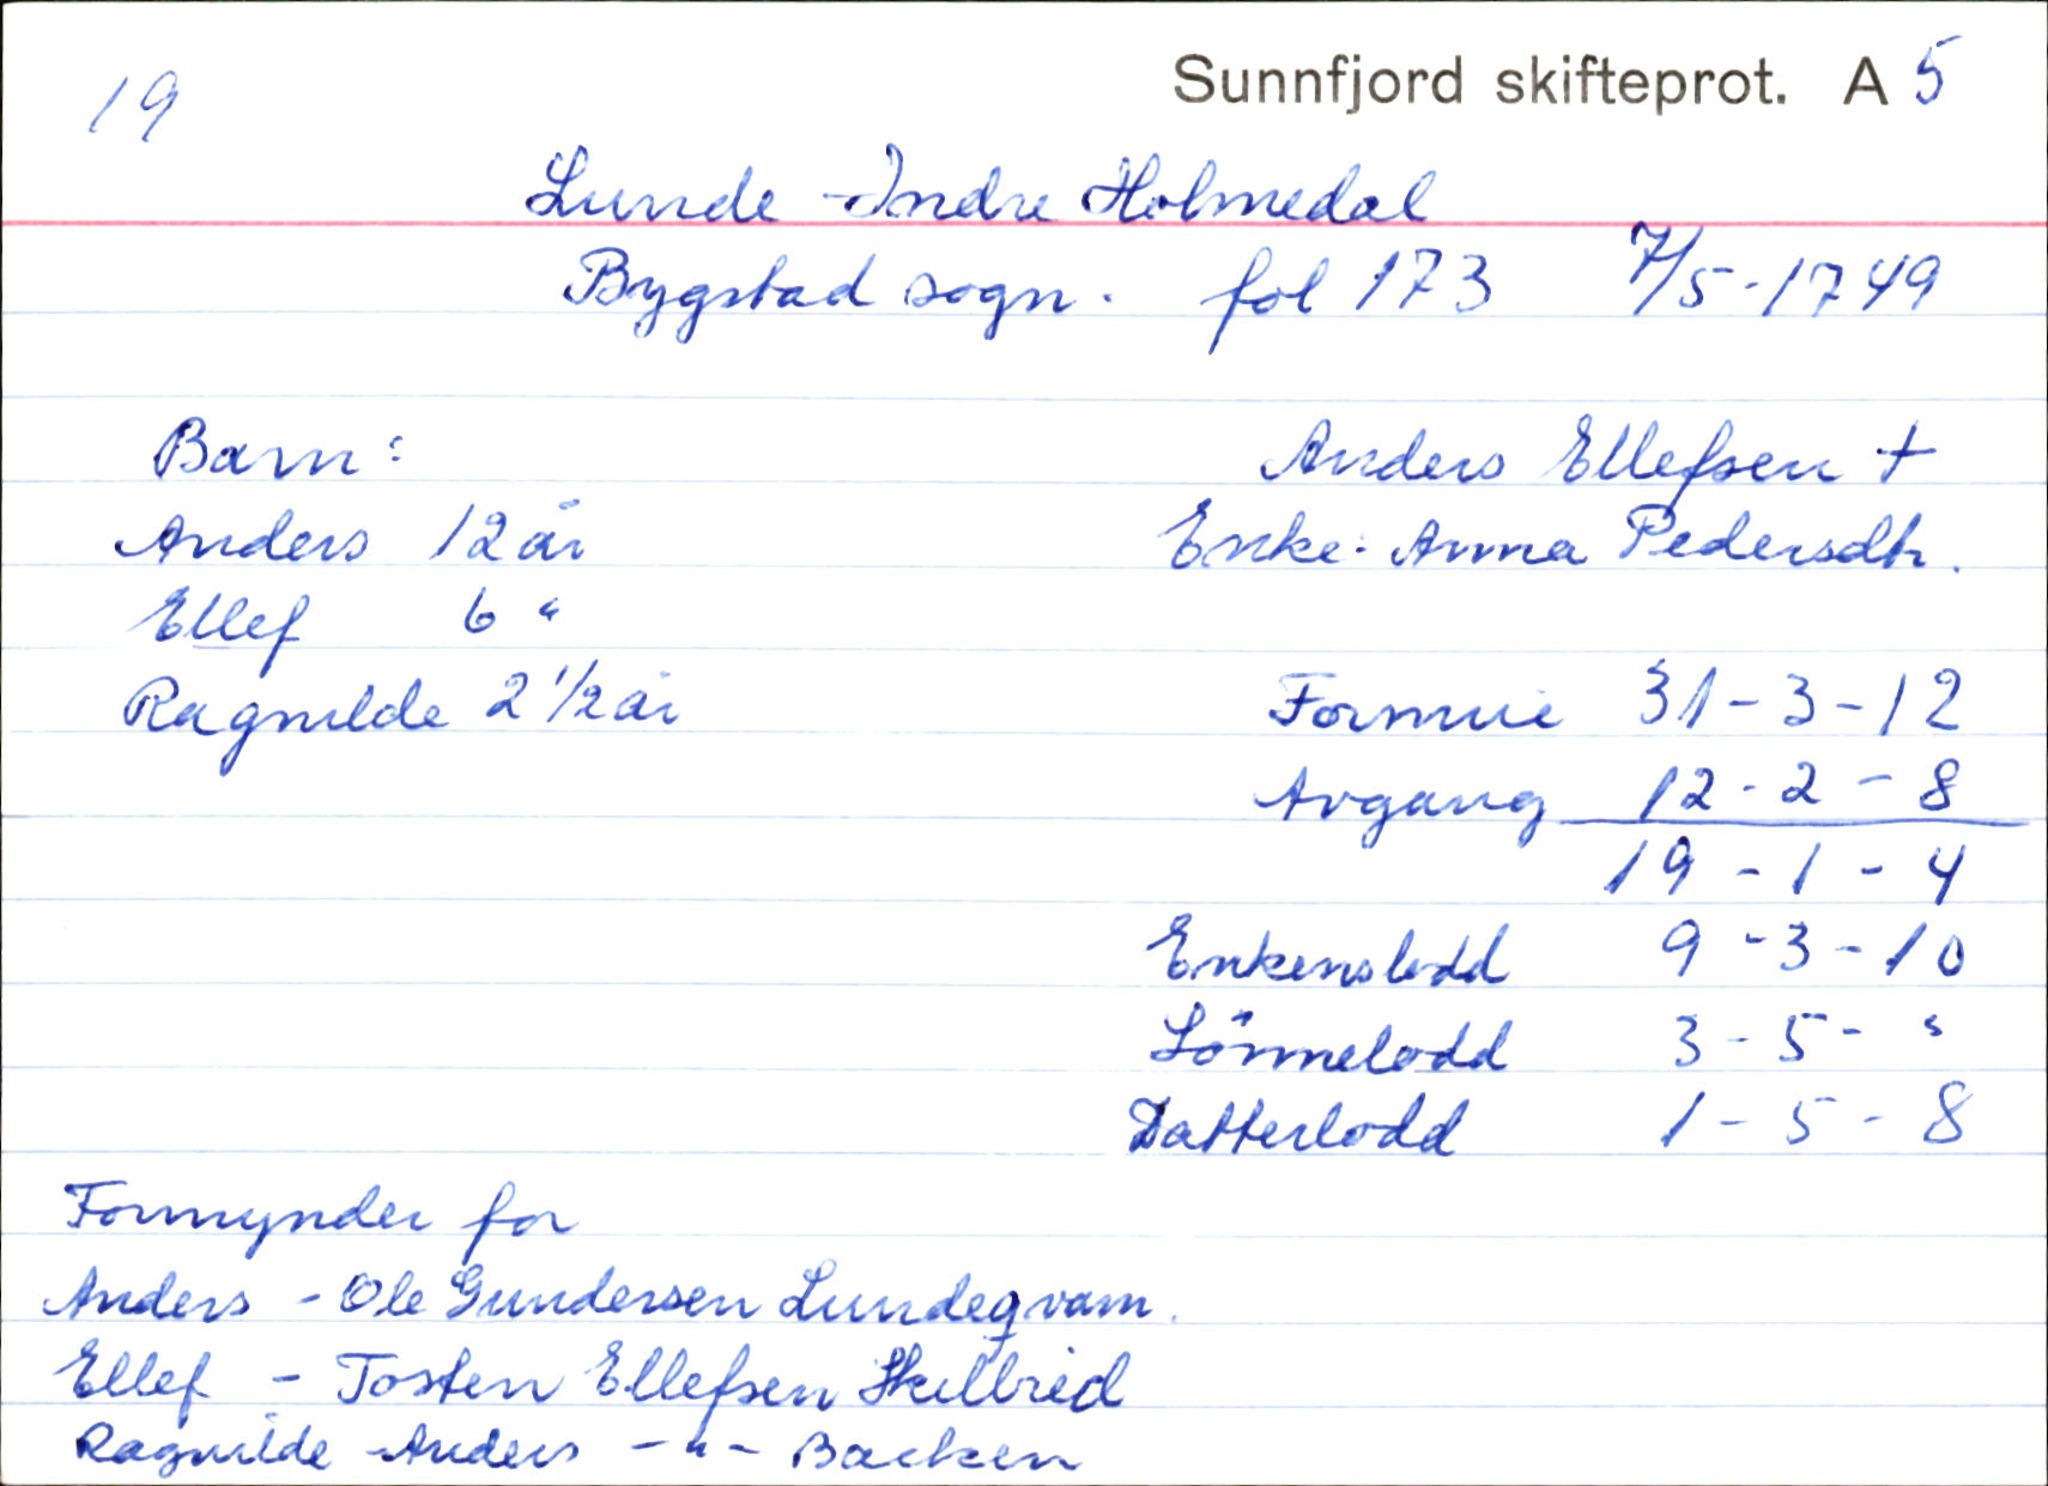 19
Sunnfjord skifteprot. A 5
Lunde - Indre Holmedal
Bygstad sogn. fol 173 7/5-1749
Barn:
Anders 12 år
Ellef 6 "
Ragnilde 2 1/2 år
Anders Ellefsen +
Enke: Anna Pedersdtr.
Formue 31-3-12
Avgang 12-2-8
19-1-4
Enkenslodd 9-3-10
Sönnelodd 3-5-"
Datterlodd 1-5-8
Formynder for
Anders - Ole Gundersen Lundeqvam.
Ellef - Tosten Ellefsen Skilbred
Ragnilde Anders -"- Backen